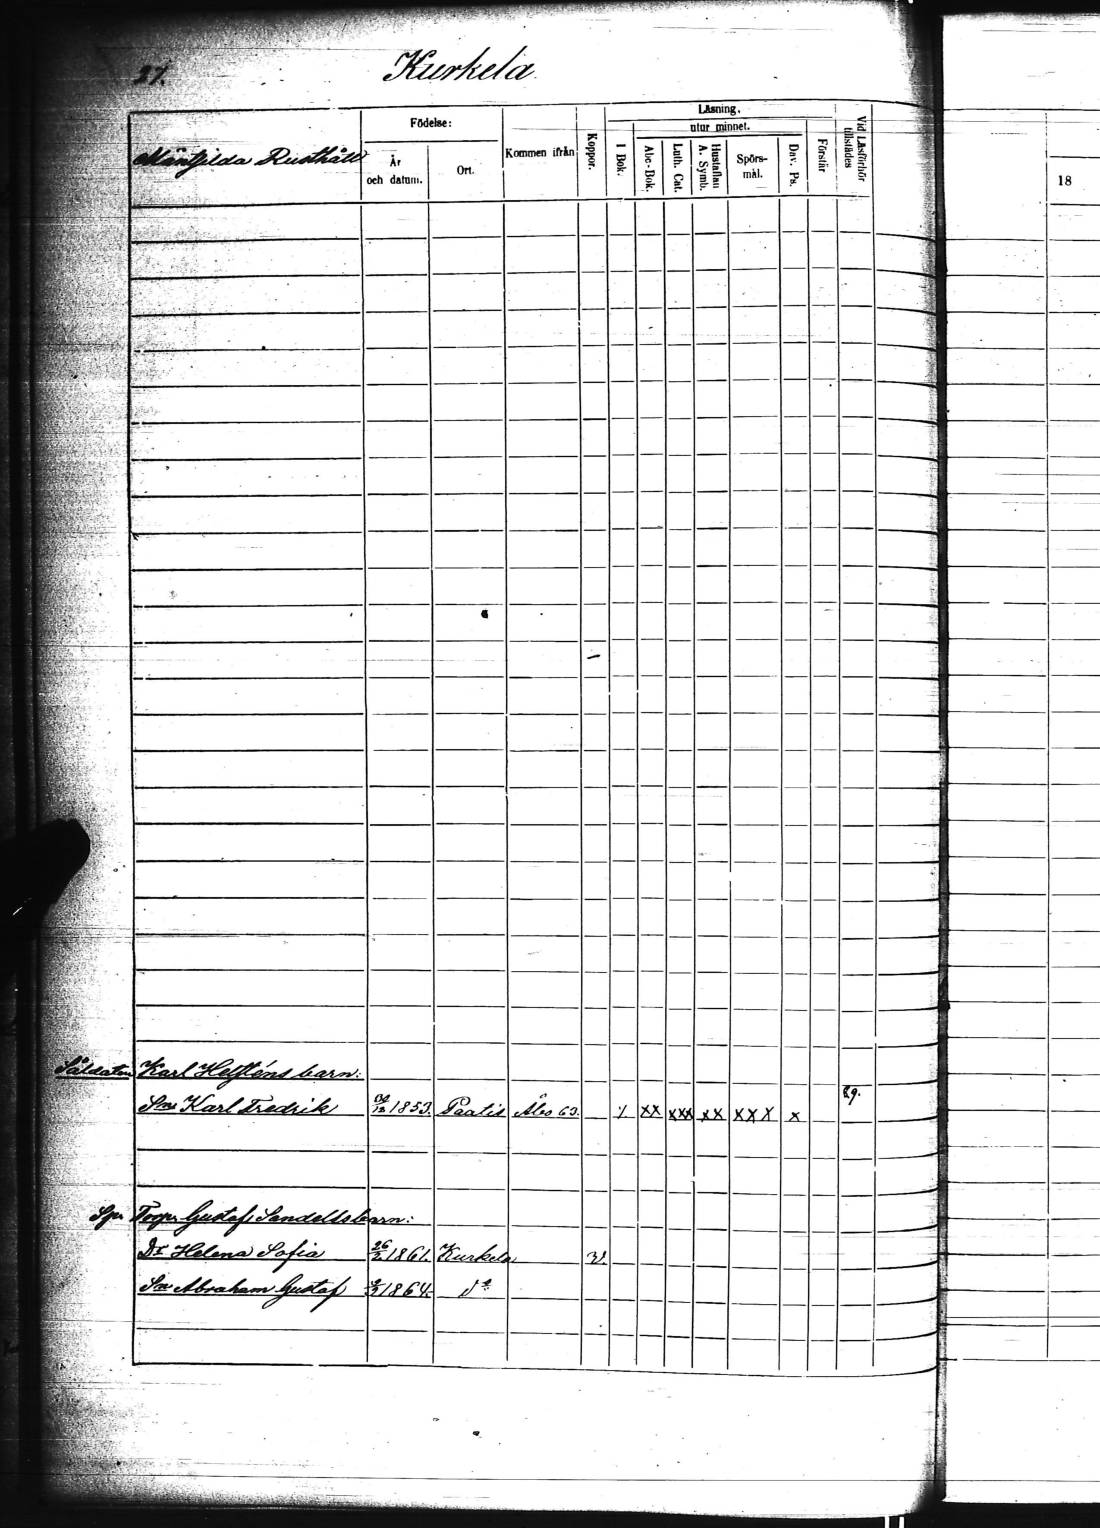 27. Kurkela
Mäntsilda Rusthåll
Födelse:
År och datum.
Ort.
Kommen ifrån
Koppor.
Läsning.
I Bok.
utur minnet.
Abc-Bok.
Luth. Cat.
Hustaflan A. Symb.
Spörsmål.
Dav. Ps.
Förstår
Vid Läsförhör tillstädes
18
Karl Helsténs barn:
Sn Karl Fredrik 1853. Paatis Åbo 63. / xx xxx xx xxx x 69.
Torp. Gustaf Sandells barn:
Dr Helena Sofia 26/2 1861. Kurkela v.
Sn Abraham Gustaf 1864. do